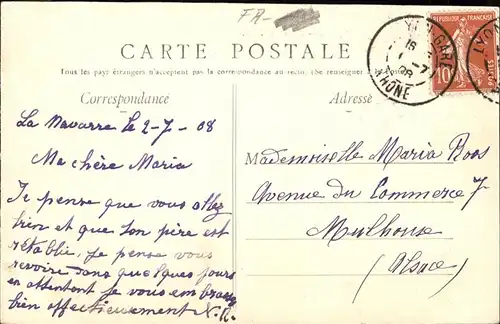 FA-
CARTE POSTALE
Tous les pays étrangers n'acceptent pas la correspondance au recto. (Se renseigner
Correspondance
Adresse
REPUBLIQUE FRANÇAISE
10
GARE
RHONE
La Navarre le 2-7-08
Ma chère Maria
Je pense que vous allez
bien et que ton père est
rétablie, je pense vous
revoire dans quelques jours
en attendant je vous embrasse
bien affectieusement N. R.
Mademoiselle Maria Roos
Avenue du Commerce 7
Mulhouse
(Alsace)